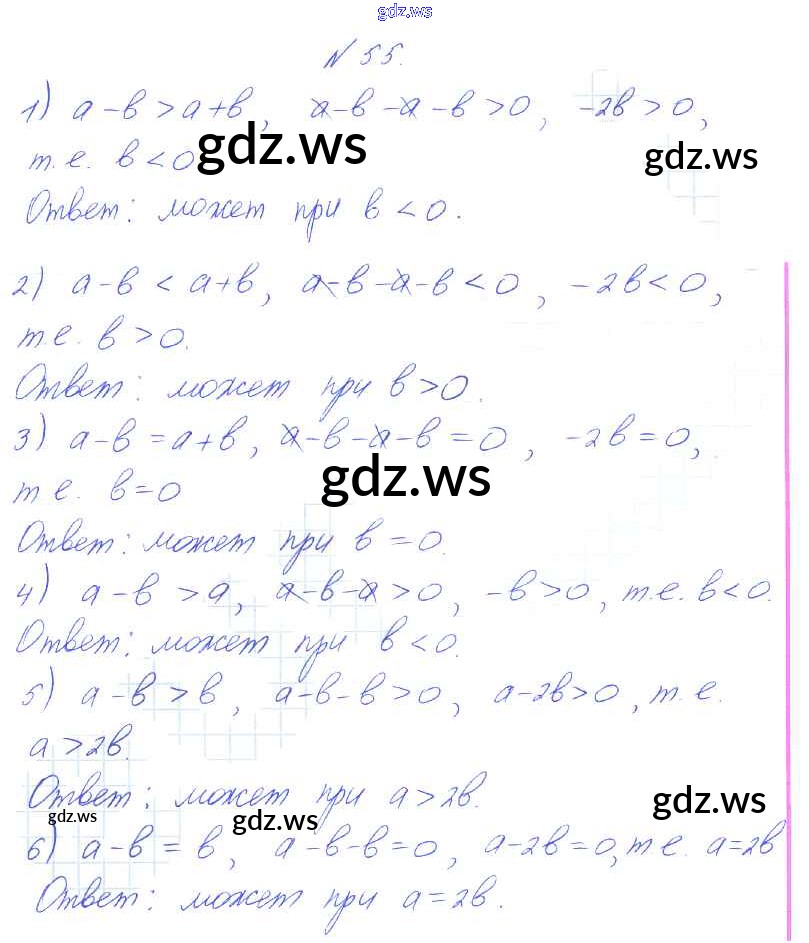 gdz.ws
№ 55.
1) а-в>а+в, а-в-а-в>0, -2в>0,
т.е. в<0
gdz.ws
gdz.ws
Ответ: может при в<0.
2) а-в<а+в, а-в-а-в<0, -2в<0,
т.е. в>0.
Ответ: может при в>0.
3) а-в=а+в, а-в-а-в=0, -2в=0,
т.е. в=0
gdz.ws
Ответ: может при в=0.
4) а-в>а, а-в-а>0, -в>0, т.е. в<0.
Ответ: может при в<0.
5) а-в>в, а-в-в>0, а-2в>0, т.е.
а>2в.
Ответ: может при а>2в.
gdz.ws
gdz.ws
gdz.ws
6) а-в=в, а-в-в=0, а-2в=0, т.е. а=2в
Ответ: может при а=2в.